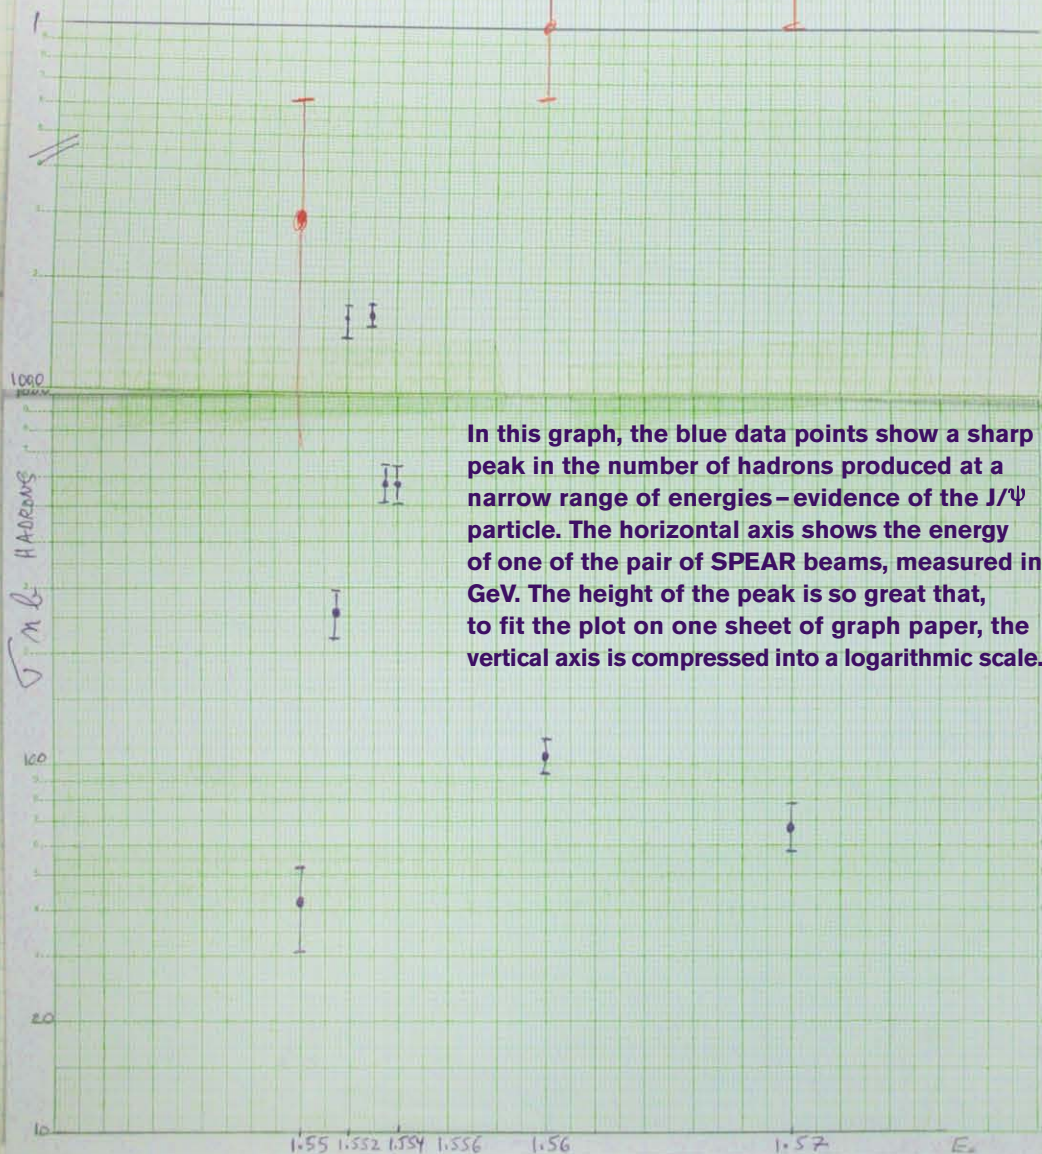 1
1000
In this graph, the blue data points show a sharp
peak in the number of hadrons produced at a
narrow range of energies–evidence of the J/Ψ
particle. The horizontal axis shows the energy
of one of the pair of SPEAR beams, measured in
GeV. The height of the peak is so great that,
to fit the plot on one sheet of graph paper, the
vertical axis is compressed into a logarithmic scale.
σ nb HADRONS
100
20
10
1.55 1.552 1.554 1.556 1.56 1.57 E